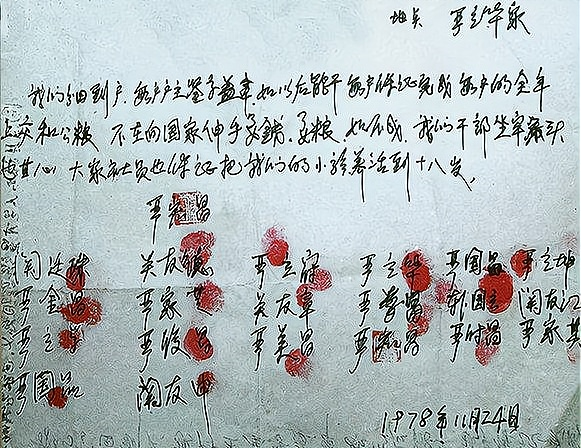 地点 严立华家
我们分田到户.每户户主签字盖章.如以后能干每户保证完成每户的全年
上交和公粮 不在向国家伸手要钱.要粮.如不成.我们干部坐牢杀头
也甘心 大家社员也保证把我们的小孩养活到十八岁.
严宏昌
关廷珠 关友德 严立符 严立华 严国昌 严立坤
严金昌 严家芝 关友章 严学昌 韩国云 关友江
严立学 严俊昌 严美昌 严宏昌 严付昌 严家其
严国品 关友申
1978年11月24日